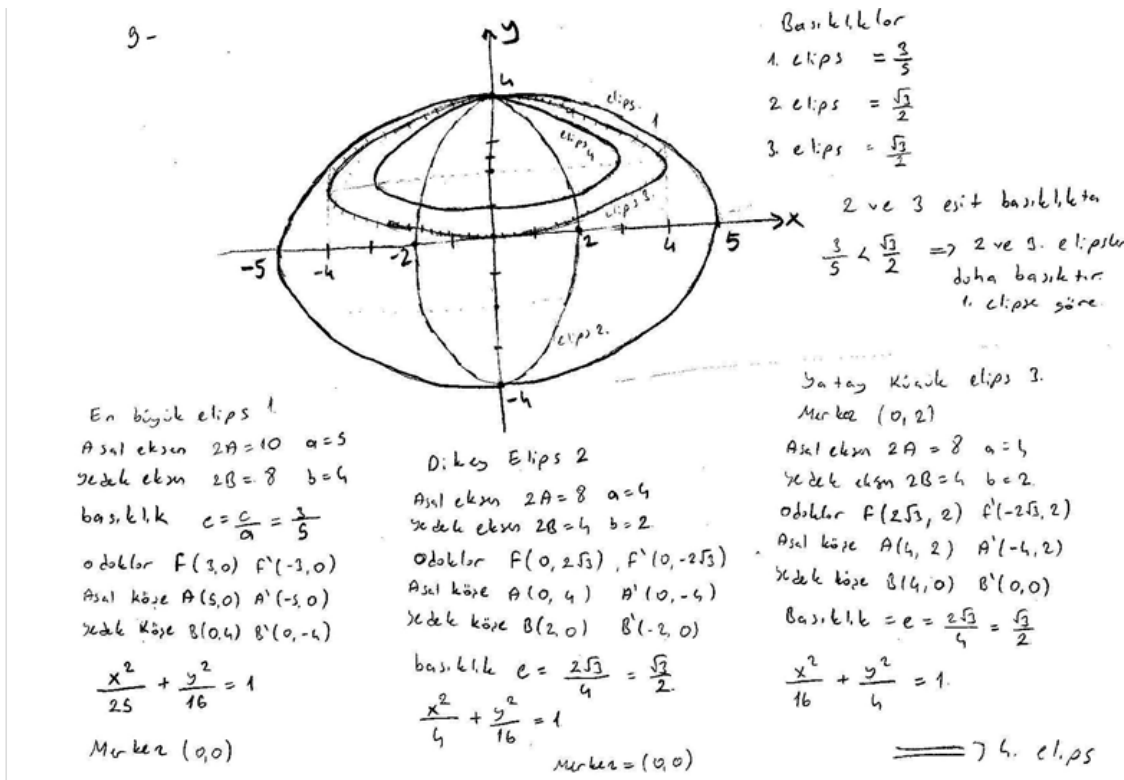 9-
y
4
elips 1
elips 4
elips 3.
x
-5
-4
-2
2
4
5
elips 2.
-4
Basıklıklar
1. elips = 3/5
2 elips = √3/2
3. elips = √3/2
2 ve 3 eşit basıklıkta
3/5 < √3/2 => 2 ve 3. elipsler
daha basıktır.
1. elipse göre.
En büyük elips 1.
Asal eksen 2A=10 a=5
Yedek eksen 2B=8 b=4
basıklık e=c/a=3/5
odaklar F(3,0) F'(-3,0)
Asal köşe A(5,0) A'(-5,0)
Yedek Köşe B(0,4) B'(0,-4)
x²/25 + y²/16 = 1
Merkez (0,0)
Dikey Elips 2
Asal eksen 2A=8 a=4
Yedek eksen 2B=4 b=2
odaklar F(0,2√3), F'(0,-2√3)
Asal köşe A(0,4) A'(0,-4)
Yedek köşe B(2,0) B'(-2,0)
basıklık e = 2√3/4 = √3/2.
x²/4 + y²/16 = 1
Merkez = (0,0)
Yatay Küçük elips 3.
Merkez (0,2)
Asal eksen 2A = 8 a=4
Yedek eksen 2B=4 b=2
odaklar F(2√3, 2) F'(-2√3, 2)
Asal köşe A(4, 2) A'(-4,2)
Yedek köşe B(4,0) B'(0,0)
Basıklık = e = 2√3/4 = √3/2
x²/16 + y²/4 = 1.
=> 4. elips